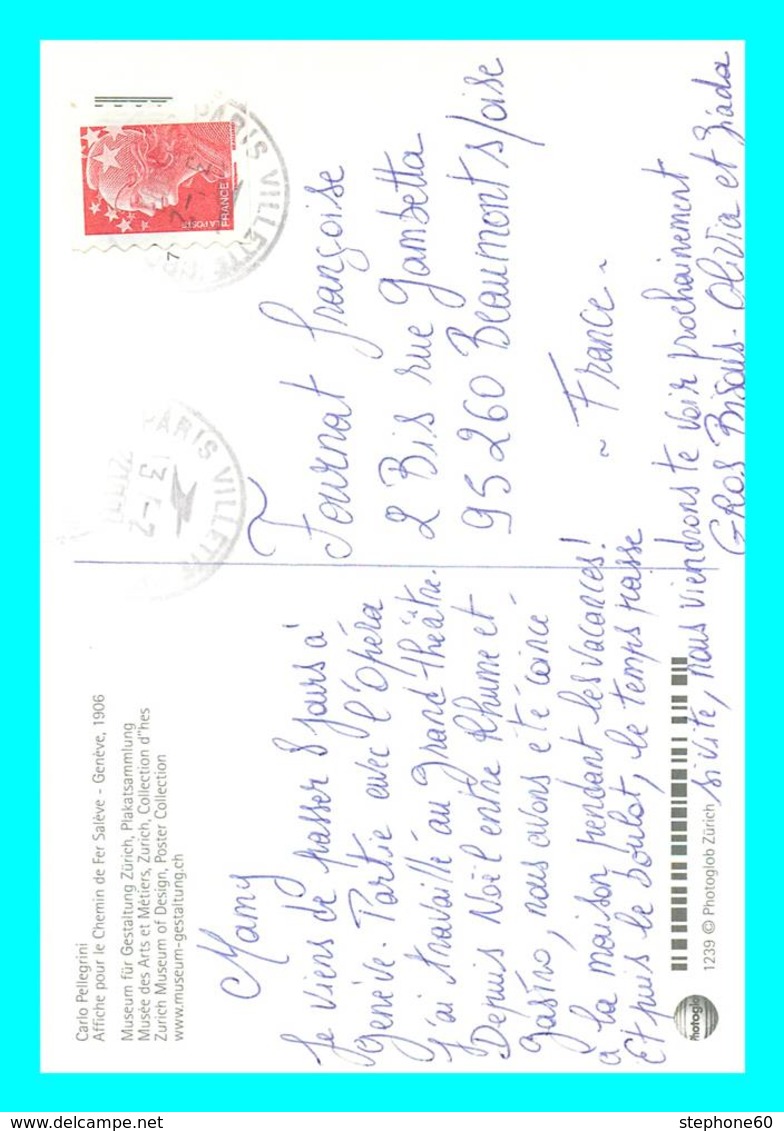 Carlo Pellegrini
Affiche pour le Chemin de Fer Salève - Genève, 1906
Museum für Gestaltung Zürich, Plakatsammlung
Musée des Arts et Métiers, Zurich, Collection d"hes
Zurich Museum of Design, Poster Collection
www.museum-gestaltung.ch
Mamy
Je viens de passer 8 jours à
Genève. Partie avec l'Opéra
J'ai travaillé au grand théâtre.
Depuis Noël entre Rhume et
gastro, nous avons été coincé
à la maison pendant les vacances!
Et puis le boulot, le temps passe
si vite, nous viendrons te voir prochainement
GROS Bisous. Olivia et
1239 © Photoglob Zürich
Photoglob
LA POSTE
FRANCE
7
PARIS VILLETTE
PARIS VILLETTE
Fournat Françoise
2 Bis rue Gambetta
95260 Beaumont s/oise
~ France ~
stephone60